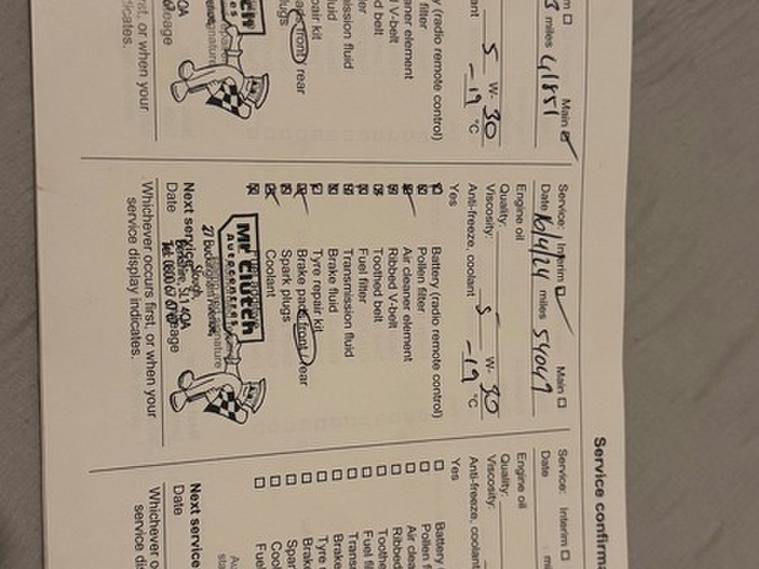 Service confirma
3 miles 41851 Main
5 W- 30
-19 °C
y (radio remote control)
filter
aner element
V-belt
d belt
er
mission fluid
uid
pair kit
ads front / rear
lugs
rst, or when your
dicates.
Service: Interim Main
Date 16/4/24 miles 54047
Engine oil
Quality:
Viscosity: 5 W- 30
Anti-freeze, coolant -19 °C
Yes
Battery (radio remote control)
Pollen filter
Air cleaner element
Ribbed V-belt
Toothed belt
Fuel filter
Transmission fluid
Brake fluid
Tyre repair kit
Brake pads front / rear
Spark plugs
Coolant
Mr Clutch
Autocentres
27 Buckingham Avenue,
Slough,
Berkshire, SL1 4QA
Tel: 0800 67 67 67
Next service
Date mileage
Whichever occurs first, or when your
service display indicates.
Service: Interim
Date mil
Engine oil
Quality:
Viscosity:
Anti-freeze, coolant
Yes
Battery
Pollen f
Air clea
Ribbed
Toothe
Fuel fil
Transm
Brake
Tyre r
Brake
Spar
Cool
Fue
Next service
Date
Whichever o
service di